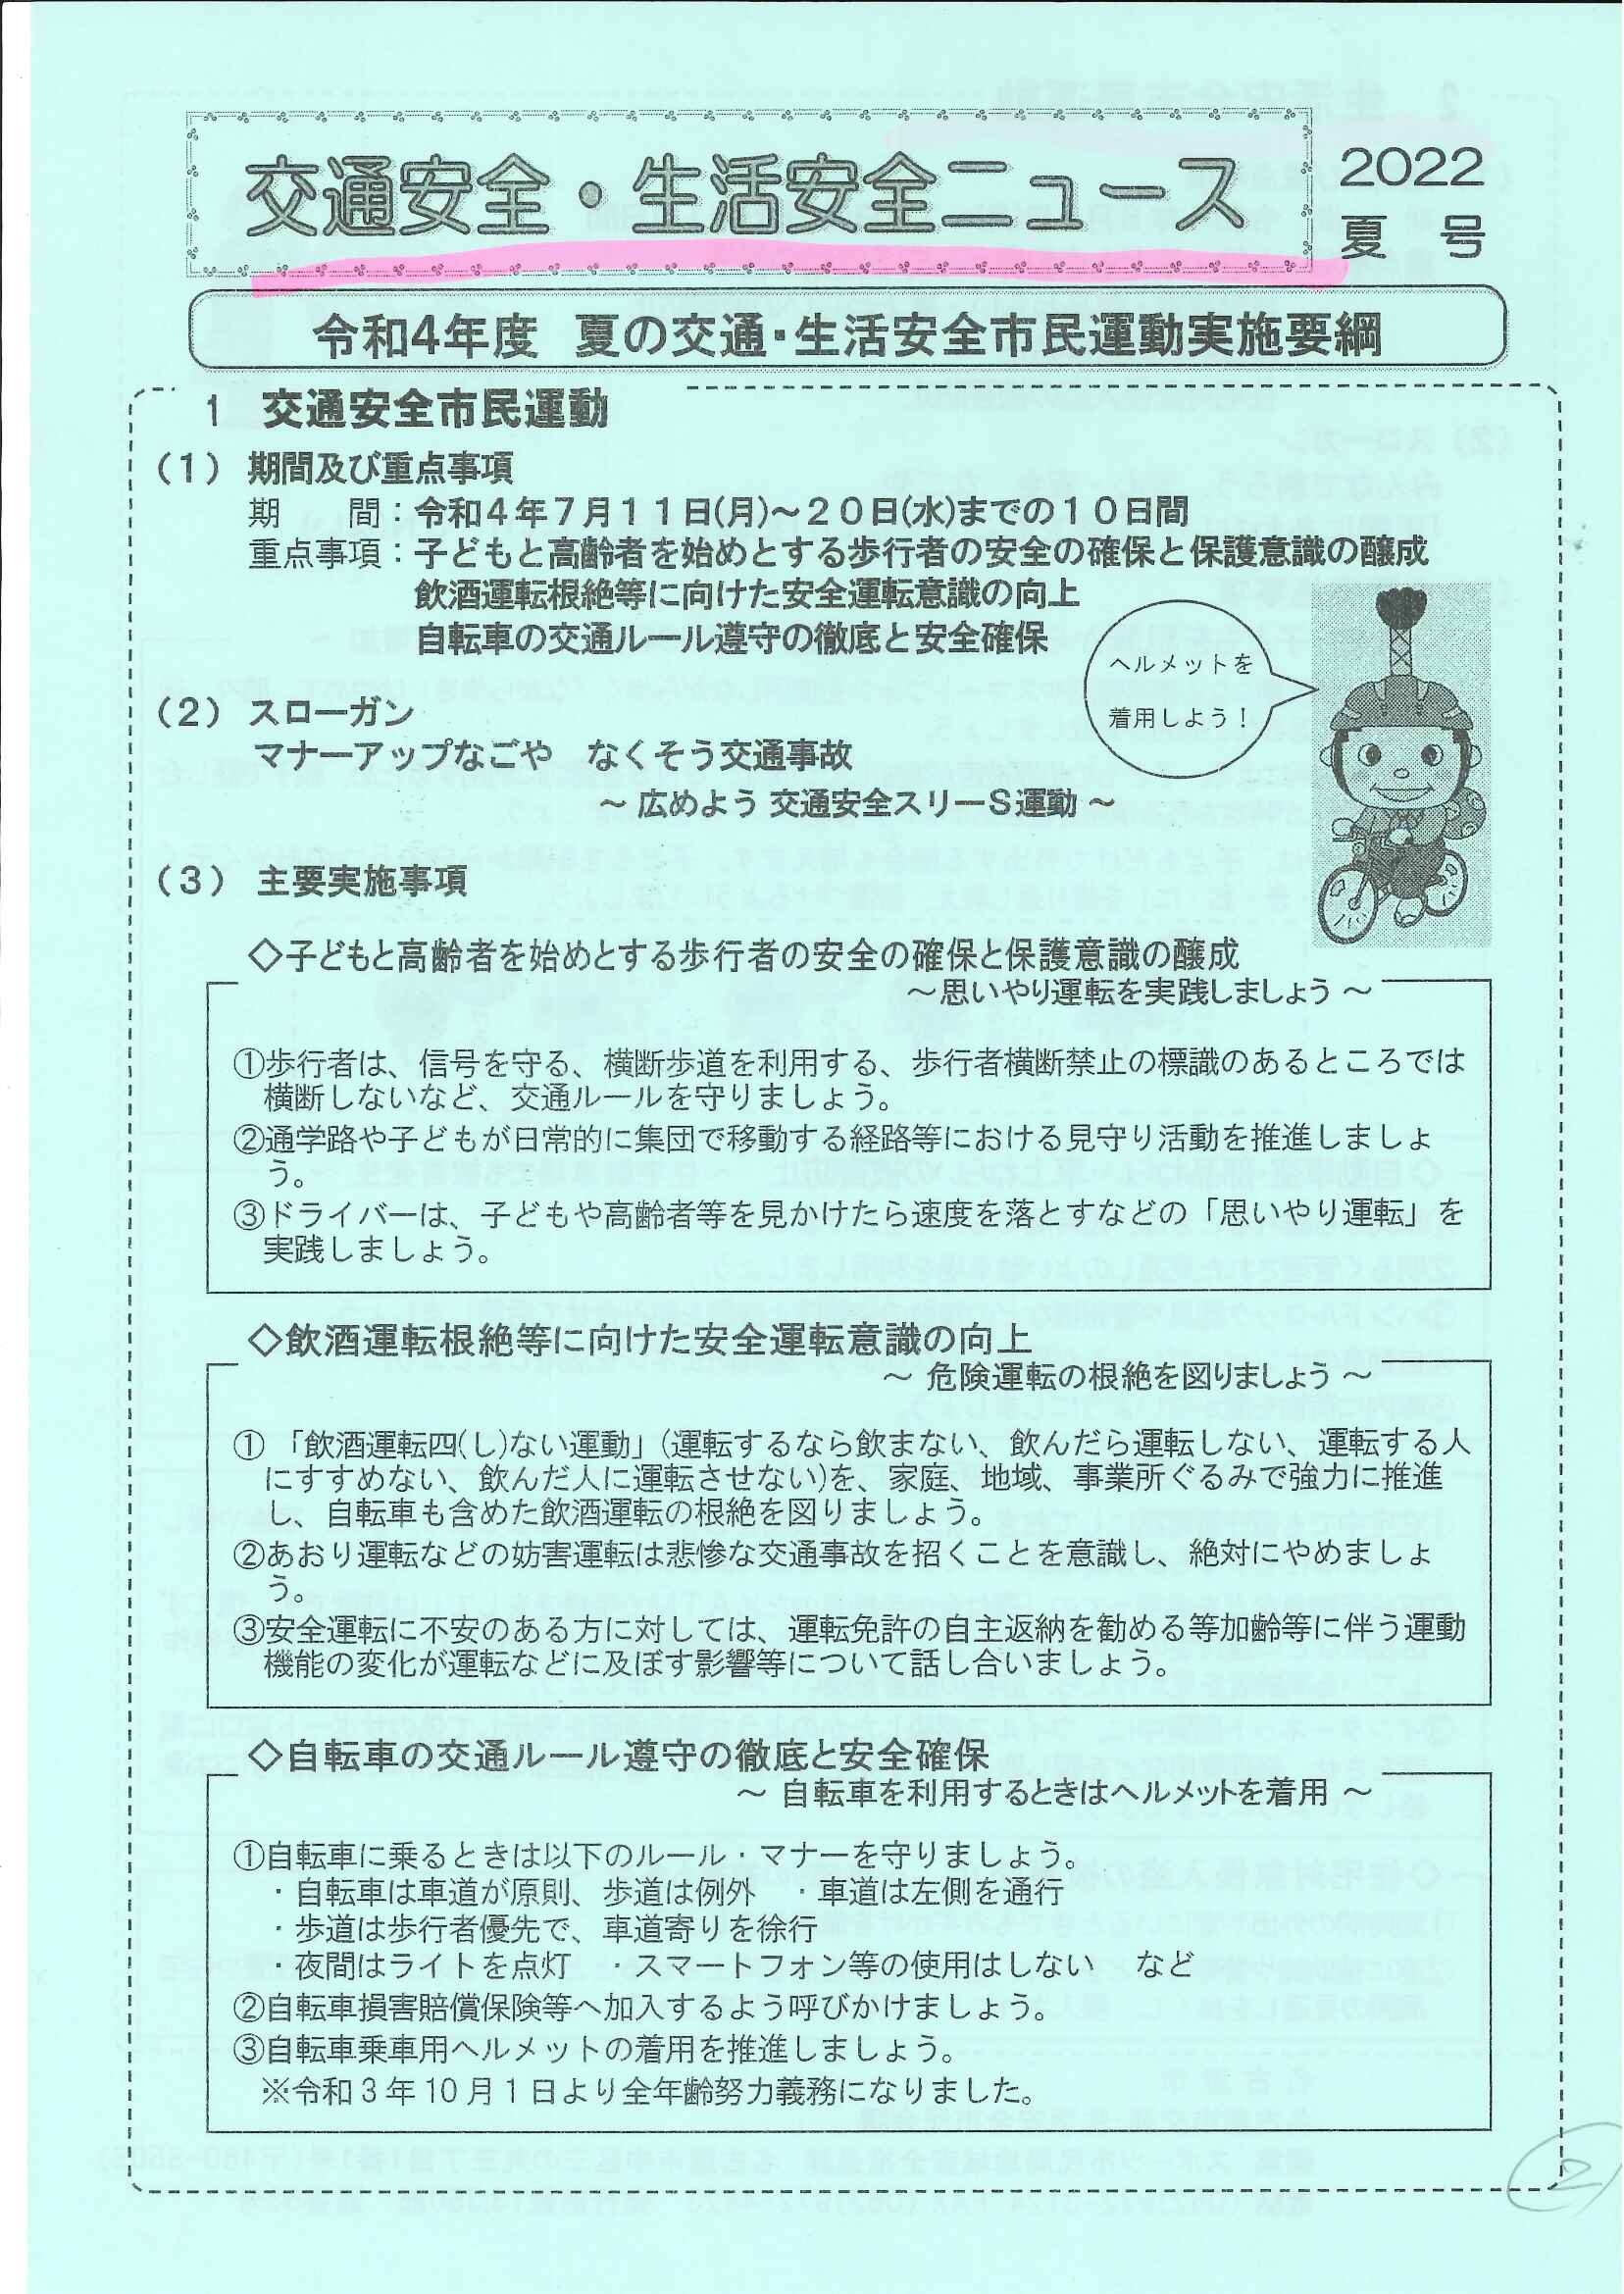 交通安全・生活安全ニュース
2022
夏 号
令和4年度 夏の交通・生活安全市民運動実施要綱
1 交通安全市民運動
(1) 期間及び重点事項
期 間：令和4年7月11日(月)～20日(水)までの10日間
重点事項：子どもと高齢者を始めとする歩行者の安全の確保と保護意識の醸成
飲酒運転根絶等に向けた安全運転意識の向上
自転車の交通ルール遵守の徹底と安全確保
ヘルメットを
着用しよう！
(2) スローガン
マナーアップなごや なくそう交通事故
～ 広めよう 交通安全スリーS運動 ～
(3) 主要実施事項
◇子どもと高齢者を始めとする歩行者の安全の確保と保護意識の醸成
～思いやり運転を実践しましょう ～
①歩行者は、信号を守る、横断歩道を利用する、歩行者横断禁止の標識のあるところでは
横断しないなど、交通ルールを守りましょう。
②通学路や子どもが日常的に集団で移動する経路等における見守り活動を推進しましょ
う。
③ドライバーは、子どもや高齢者等を見かけたら速度を落とすなどの「思いやり運転」を
実践しましょう。
◇飲酒運転根絶等に向けた安全運転意識の向上
～ 危険運転の根絶を図りましょう ～
①「飲酒運転四(し)ない運動」(運転するなら飲まない、飲んだら運転しない、運転する人
にすすめない、飲んだ人に運転させない)を、家庭、地域、事業所ぐるみで強力に推進
し、自転車も含めた飲酒運転の根絶を図りましょう。
②あおり運転などの妨害運転は悲惨な交通事故を招くことを意識し、絶対にやめましょ
う。
③安全運転に不安のある方に対しては、運転免許の自主返納を勧める等加齢等に伴う運動
機能の変化が運転などに及ぼす影響等について話し合いましょう。
◇自転車の交通ルール遵守の徹底と安全確保
～ 自転車を利用するときはヘルメットを着用 ～
①自転車に乗るときは以下のルール・マナーを守りましょう。
・自転車は車道が原則、歩道は例外 ・車道は左側を通行
・歩道は歩行者優先で、車道寄りを徐行
・夜間はライトを点灯 ・スマートフォン等の使用はしない など
②自転車損害賠償保険等へ加入するよう呼びかけましょう。
③自転車乗車用ヘルメットの着用を推進しましょう。
※令和3年10月1日より全年齢努力義務になりました。
2